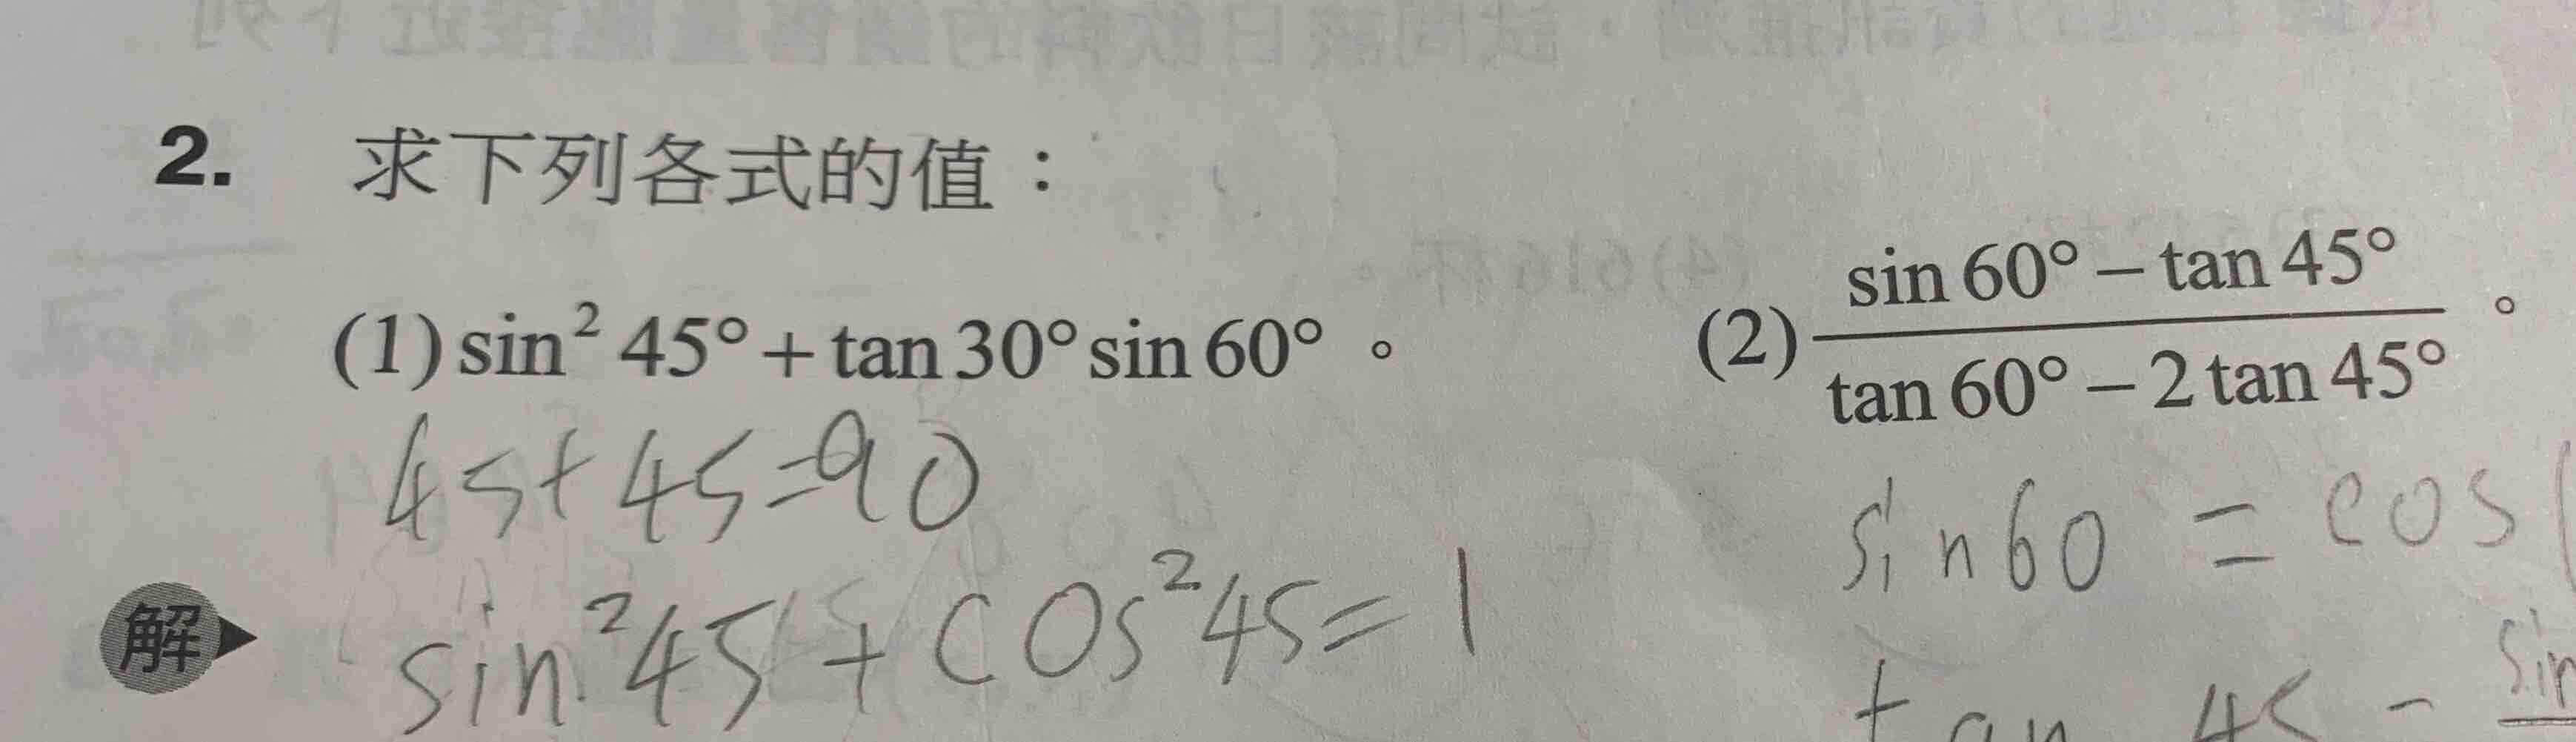 2. 求下列各式的值：
(1) sin² 45° + tan 30° sin 60° 。
(2) (sin 60° − tan 45°) / (tan 60° − 2 tan 45°) 。
45+45=90
解 sin²45 + cos²45 = 1
sin60 = cos
tan 45 - sin